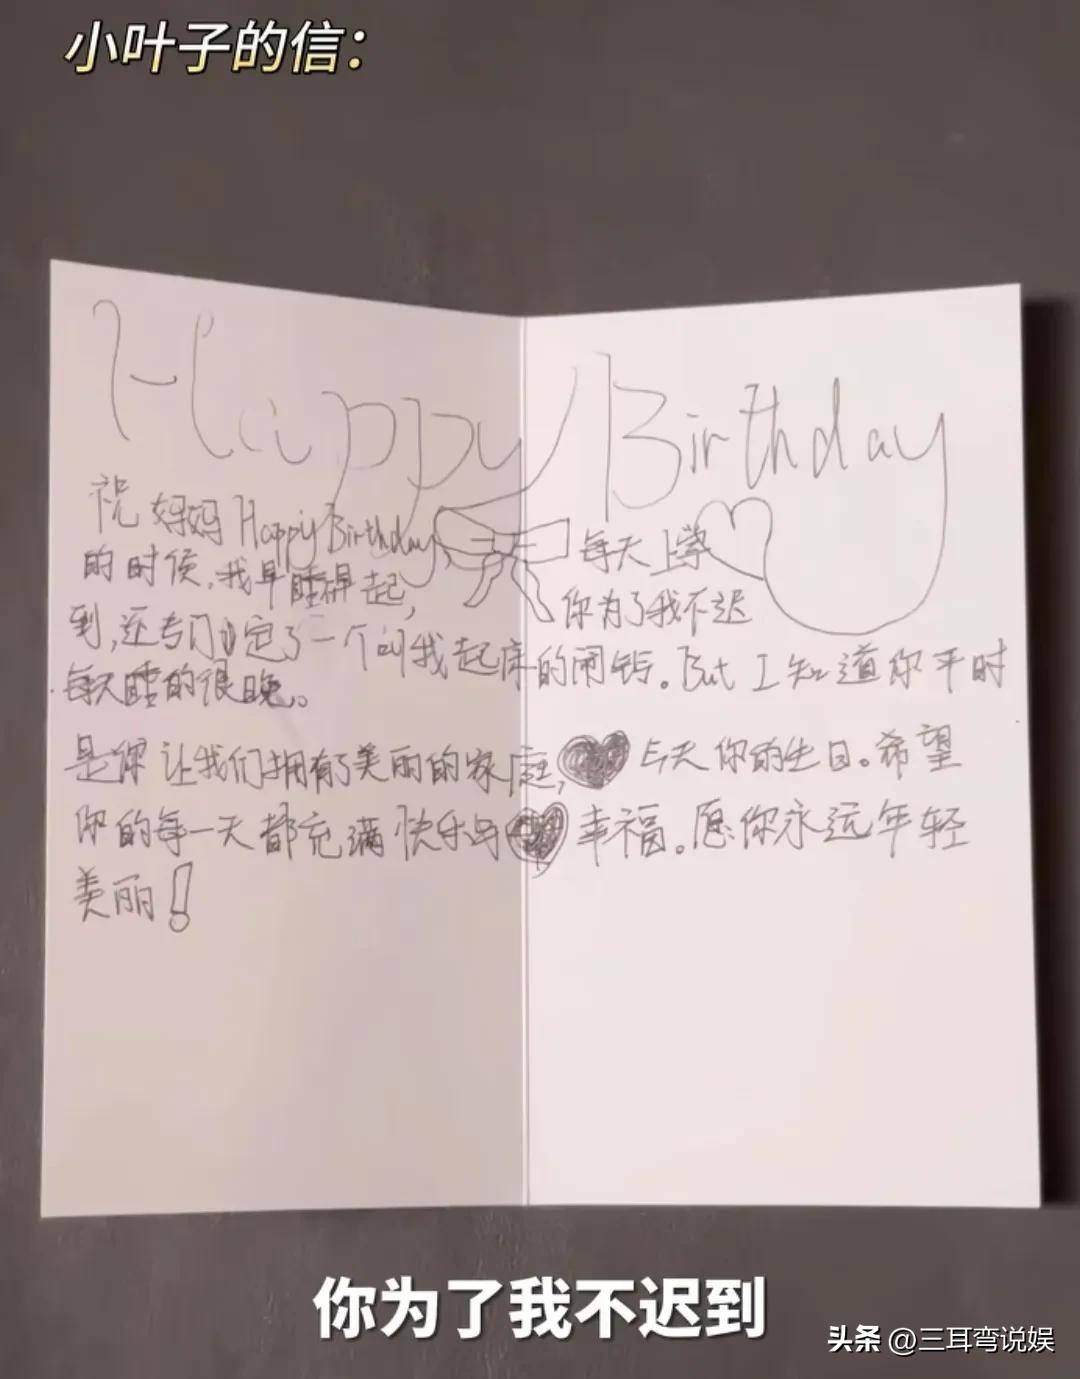 小叶子的信：
Happy Birthday
祝妈妈Happy Birthday, 每天上学
的时候，我早睡早起， 你为了我不迟
到，还专门定了一个叫我起床的闹钟。But I知道你平时
每天睡的很晚。
是你让我们拥有了美丽的家庭，今天你的生日。希望
你的每一天都充满快乐与幸福。愿你永远年轻
美丽！
你为了我不迟到
头条 @三耳弯说娱